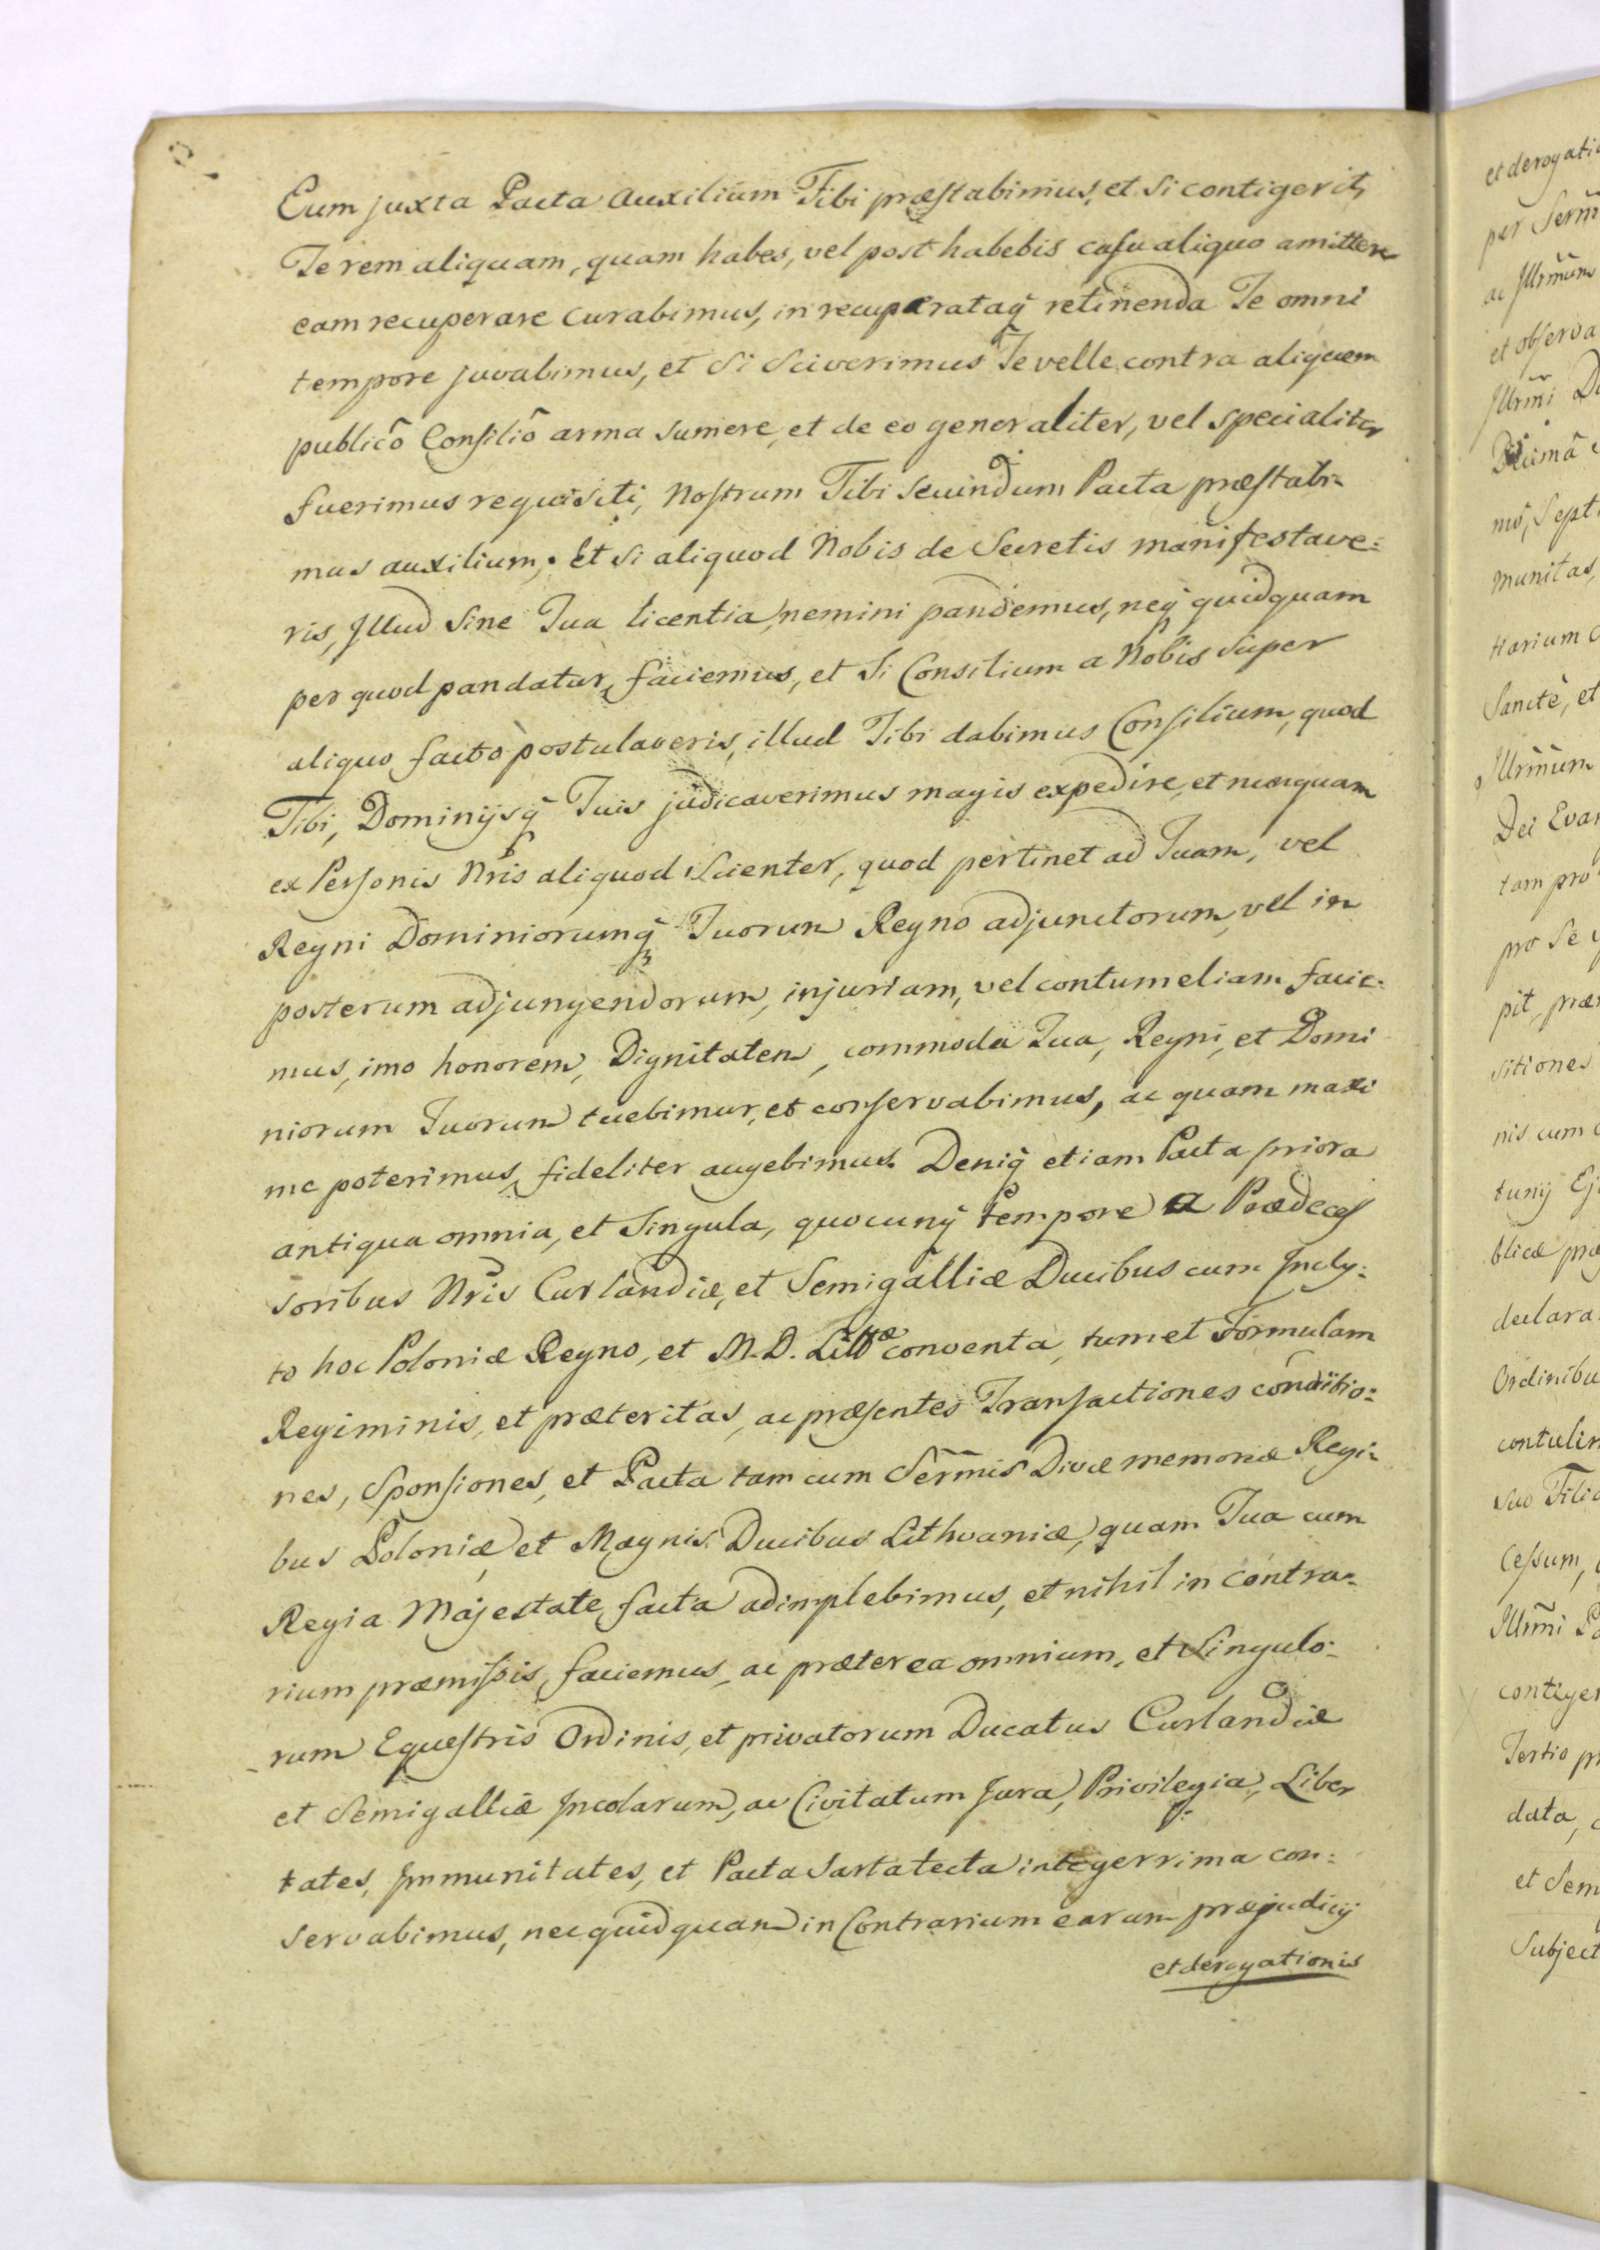 Eum juxta Pacta auxilium Tibi præstabimus, et si contigerit,
Te rem aliquam, quam habes, vel post habebis casu aliquo amittere
eam recuperare curabimus, in recuperataq̃ retinenda Te omni
tempore juvabimus, et si sciverimus Te velle contra aliquem
publicô Consiliô arma sumere, et de eo generaliter, vel specialiter
fuerimus requisiti, Nostrum Tibi secundum Pacta præstabi-
mus auxilium, Et si aliquod Nobis de Secretis manifestave:
ris, Illud Sine Tua licentia, nemini pandemus, neq̃ quidquam
per quod pandatur, faciemus, et Si Consilium a Nobis Super
aliquo facto postulaveris, illud Tibi dabimus Consilium, quod
Tibi, Dominijsq̃ Tuis judicaverimus magis expedire, et nunquam
ex Personis Nris aliquod Scienter, quod pertinet ad Tuam, vel
Regni Dominiorumq̃ Tuorum Regno adjunctorum, vel in
posterum adjungendorum, injuriam, vel contumeliam facie:
mus, imo honorem, Dignitatem, commoda Tua, Regni, et Domi
niorum Tuorum tuebimur, et conservabimus, ac quam maxi
me poterimus, fideliter augebimus. Deniq̃ etiam Pacta priora
antiqua omnia, et Singula, quocunq̃ tempore a Prædeces
soribus Nris Curlandiæ, et Semigalliæ Ducibus cum Incly:
to hoc Poloniæ Regno, et M. D. Littæ conventa, tum et Formulam
Regiminis, et præteritas, ac præsentes Transactiones conditio:
nes, Sponsiones, et Pacta tam cum Serm̃is Divæ memoriæ Regi:
bus Poloniæ, et Magnis Ducibus Lithvaniæ, quam Tua cum
Regia Majestate, facta adimplebimus, et nihil in contra:
rium præmissis, faciemus, ac præterea omnium, et Singulo:
rum Equestris Ordinis, et privatorum Ducatus Curlandiæ
et Semigalliæ Incolarum, ac Civitatum Jura, Privilegia, Liber
tates, Immunitates, et Pacta Sartatecta integerrima con:
servabimus, nec quidquam in Contrarium earum præjudicij
et derogationis
et derogati
per Serm̃
ac Illrm̃um
et observa
Illrm̃i D
munitas,
Sanctè, et
Illrm̃um
Dei Evan
tam pro
pro Se
pit, præ
sitiones
nis cum
blicæ præ
declara
Ordinibu
contulin
suo Filio
cessum,
Illrm̃i
contiger
Tertio pr
data,
et Sem
Subject